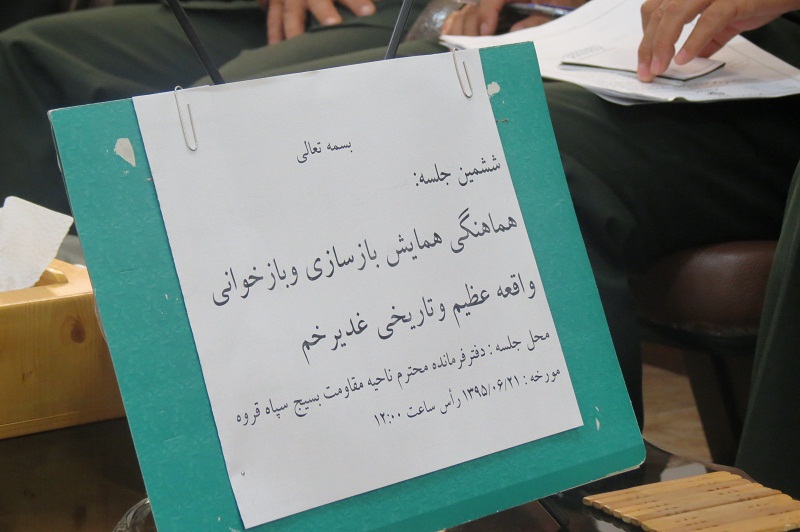 بسمه تعالی
ششمین جلسه:
هماهنگی همایش بازسازی وبازخوانی
واقعه عظیم وتاریخی غدیرخم
محل جلسه : دفترفرمانده محترم ناحیه مقاومت بسیج سپاه قروه
مورخه : ۱۳۹۵/۰۶/۲۱ رأس ساعت ۱۲:۰۰